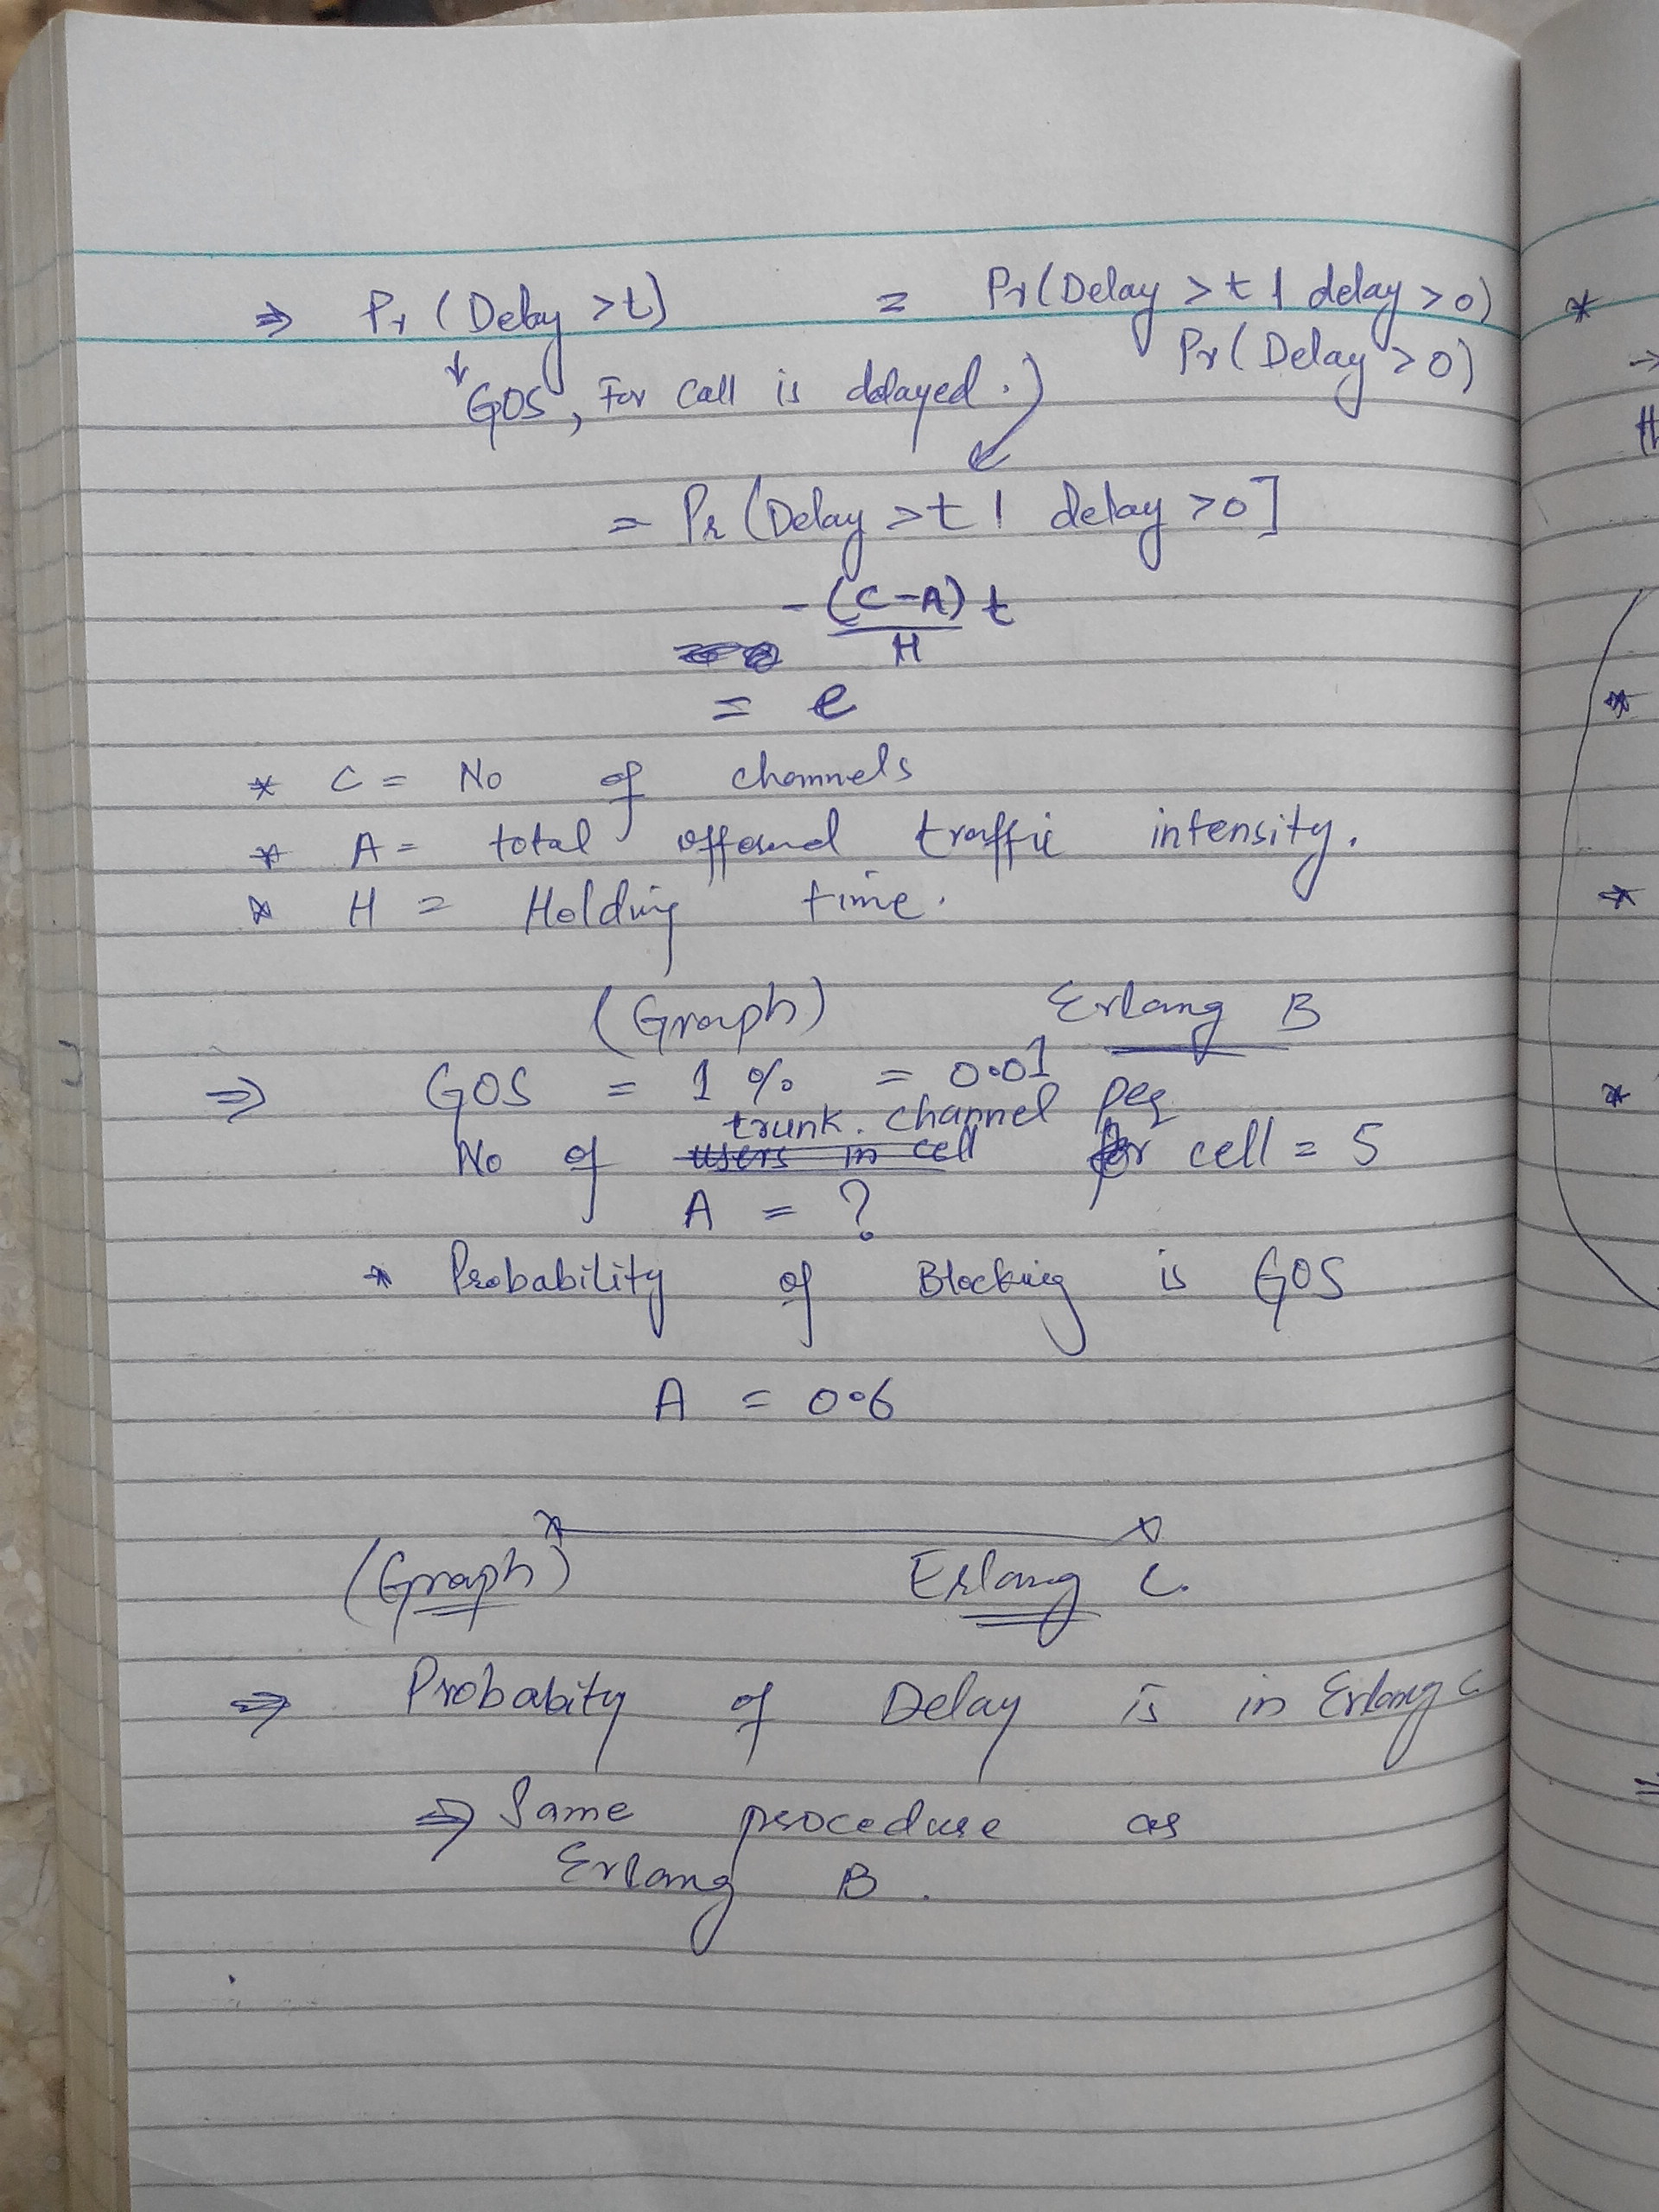 ⇒ Pr (Delay >t) = Pr(Delay >t | delay >0)
Pr(Delay >0)
↓
GOS, For Call is delayed.)
= Pr (Delay >t | delay >0]
-(C-A) t
H
= e
* C = No of channels
* A = total offered traffic intensity.
* H = Holding time.
(Graph) Erlang B
⇒ GOS = 1 % = 0.01
trunk. channel per
No of users in cell for cell = 5
A = ?
* Probability of Blocking is GOS
A = 0.6
(Graph) Erlang C.
⇒ Probabity of Delay is in Erlang C
⇒ Same procedure as
Erlang B.